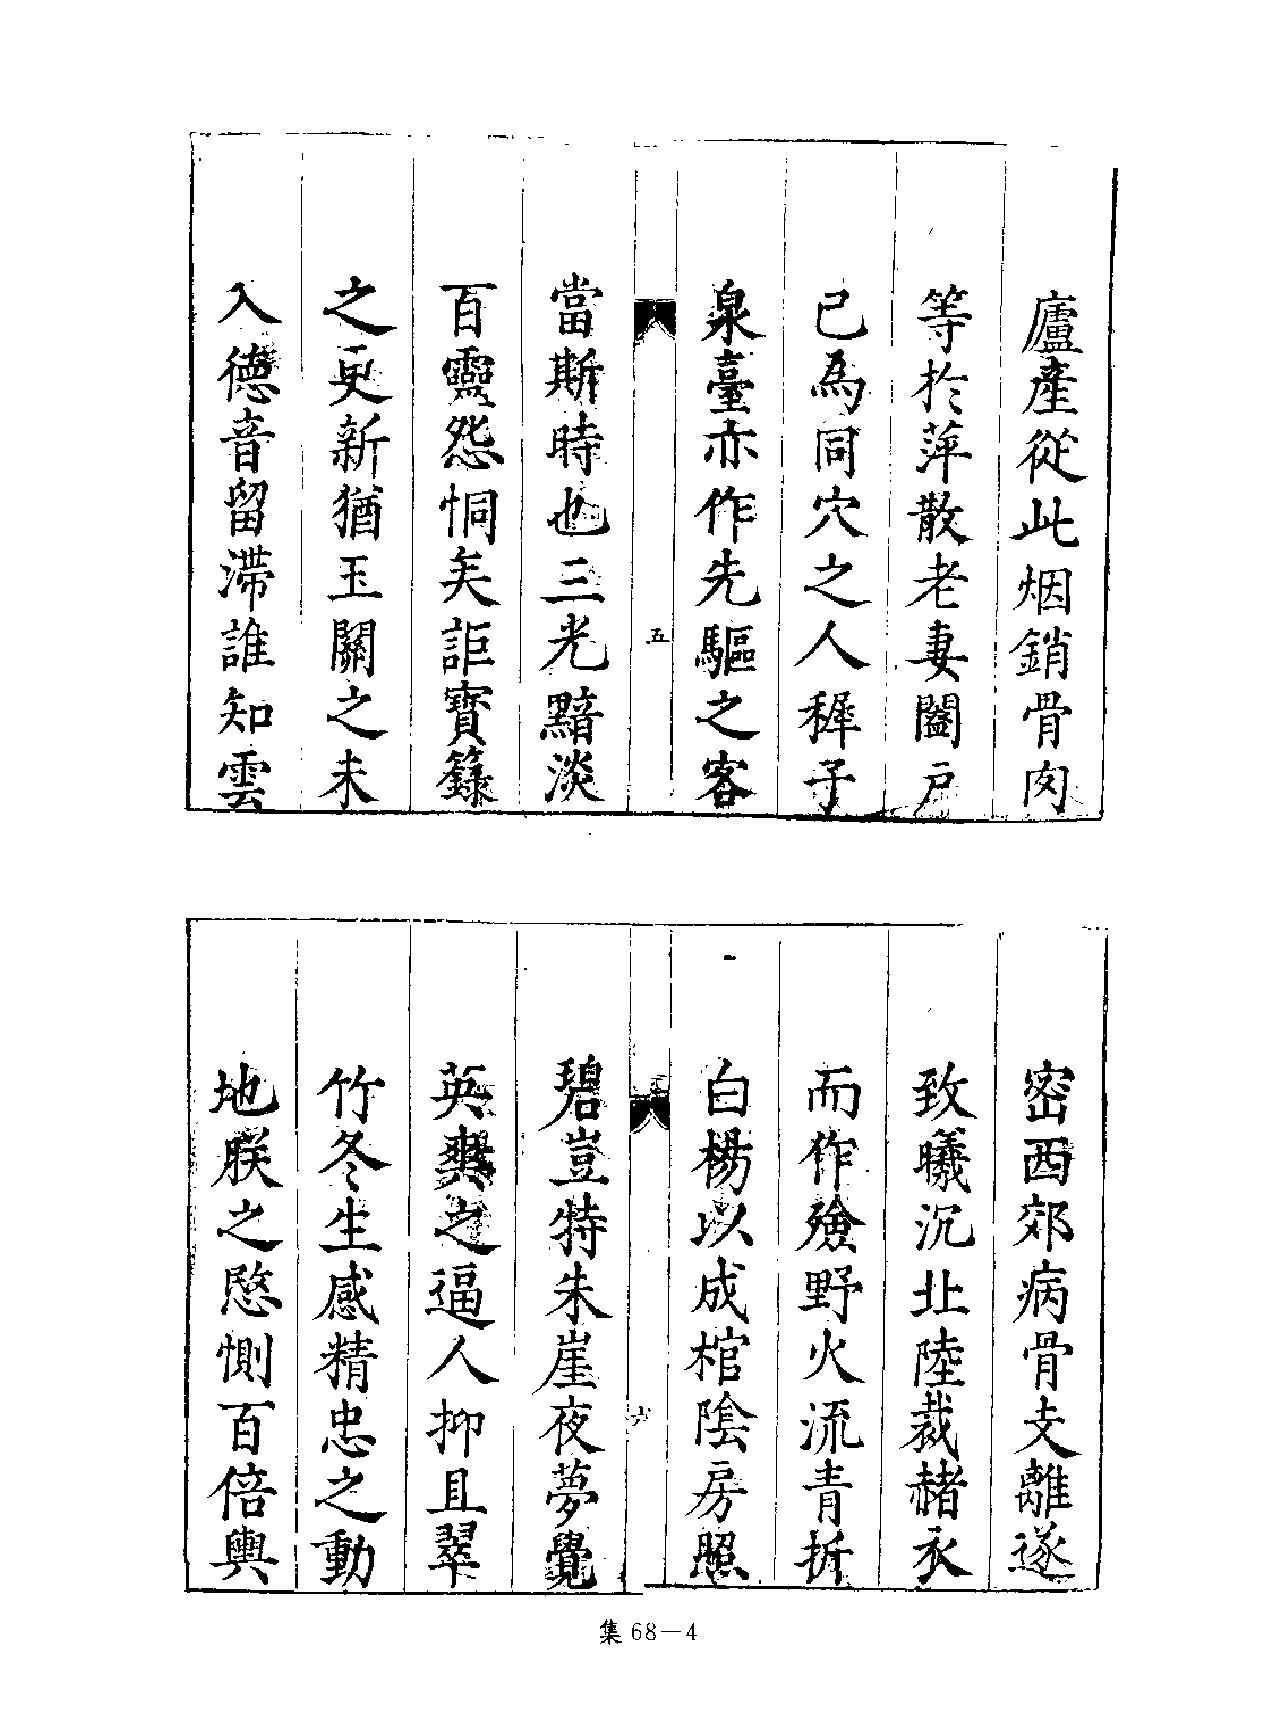 廬產從此烟銷骨肉
等於萍散老妻闔戶
已為同穴之人穉子
泉臺亦作先驅之客
五
當斯時也三光黯淡
百靈怨恫矣詎寳籙
之更新猶玉關之未
入德音留滯誰知雲
密西郊病骨支離遂
致曦沉北陸裁赭衣
而作殮野火流青折
白楊以成棺陰房照
六
碧豈特朱崖夜夢覺
英爽之逼人抑且翠
竹冬生感精忠之動
地朕之愍惻百倍輿
集 68—4